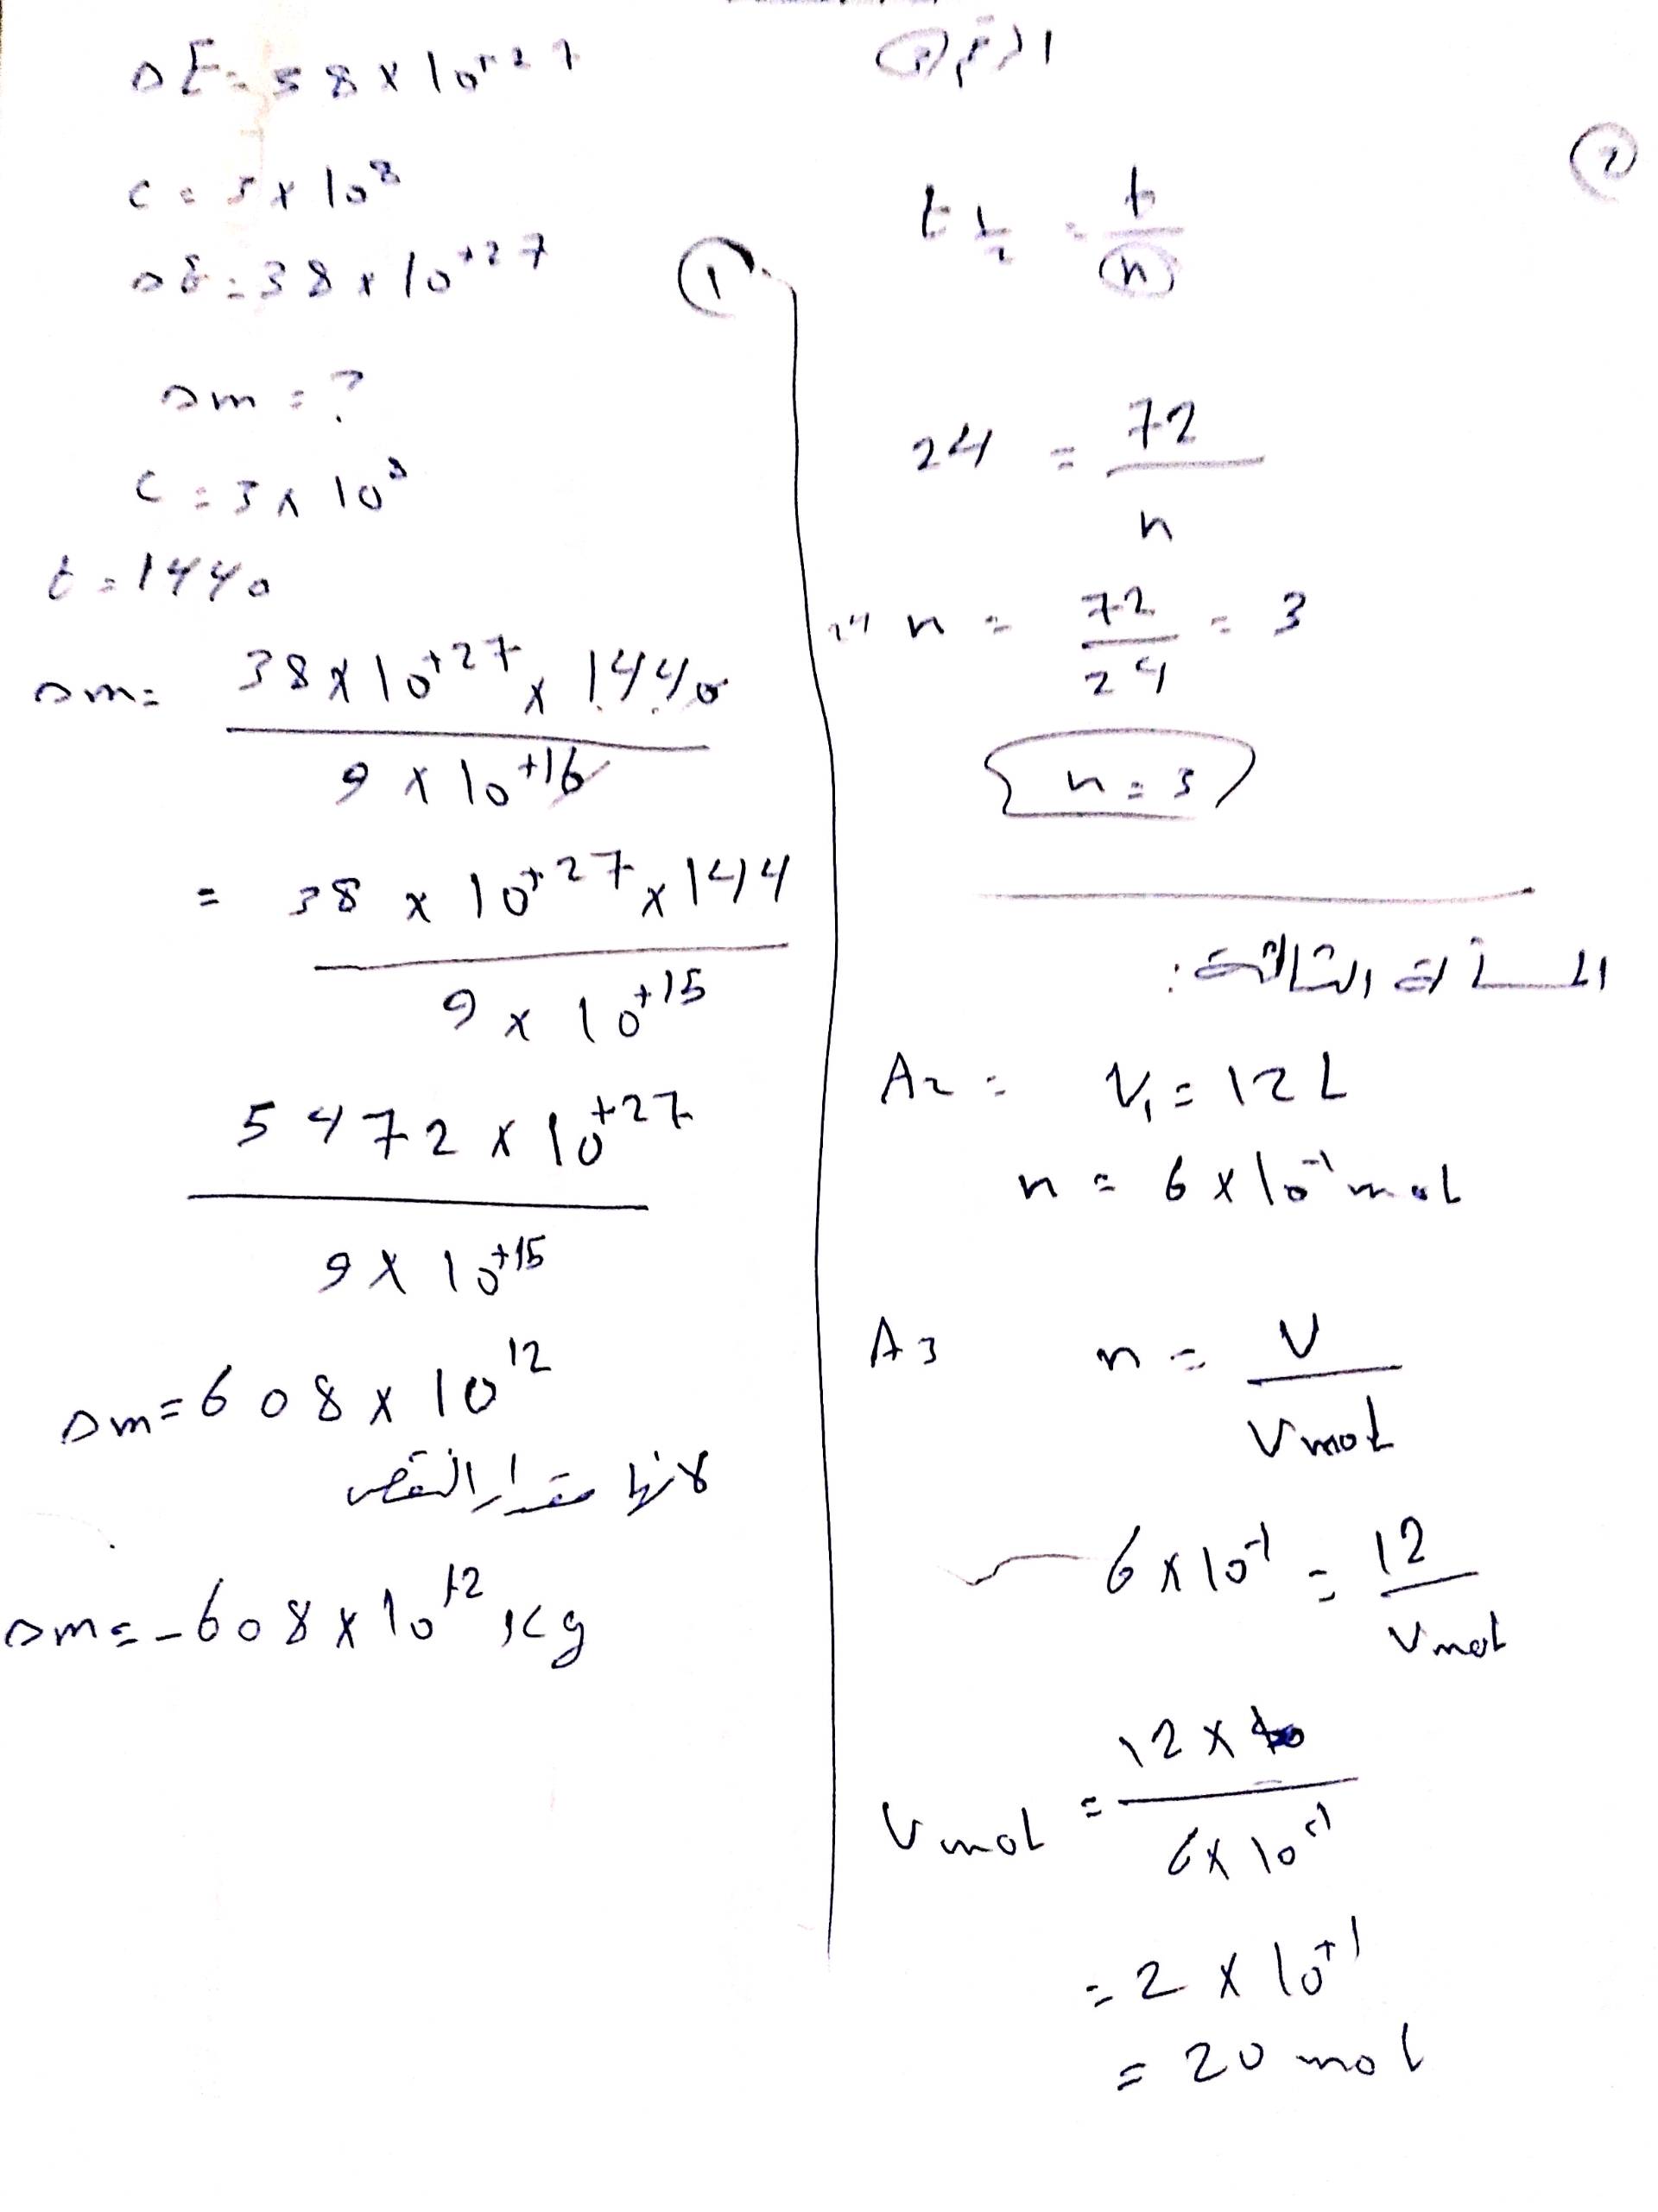 ΔE = 38 × 10⁺²⁷
C = 3 × 10⁸
ΔE = 38 × 10⁺²⁷
①
Δm = ?
C = 3 × 10⁸
t = 1440
Δm = 38 × 10⁺²⁷ × 1440
9 × 10⁺¹⁶
= 38 × 10⁺²⁷ × 144
9 × 10⁺¹⁵
5472 × 10⁺²⁷
9 × 10⁺¹⁵
Δm = 608 × 10¹²
لانها مقدار النقص
Δm = -608 × 10¹² Kg
②
t ½ = t
n
24 = 72
n
n = 72 = 3
24
n = 3
المسألة الثالثة:
A2 = V₁ = 12 L
n = 6 × 10⁻¹ mol
A3 n = V
Vmol
6 × 10⁻¹ = 12
Vmol
Vmol = 12 ×
6 × 10⁻¹
= 2 × 10⁺¹
= 20 mol